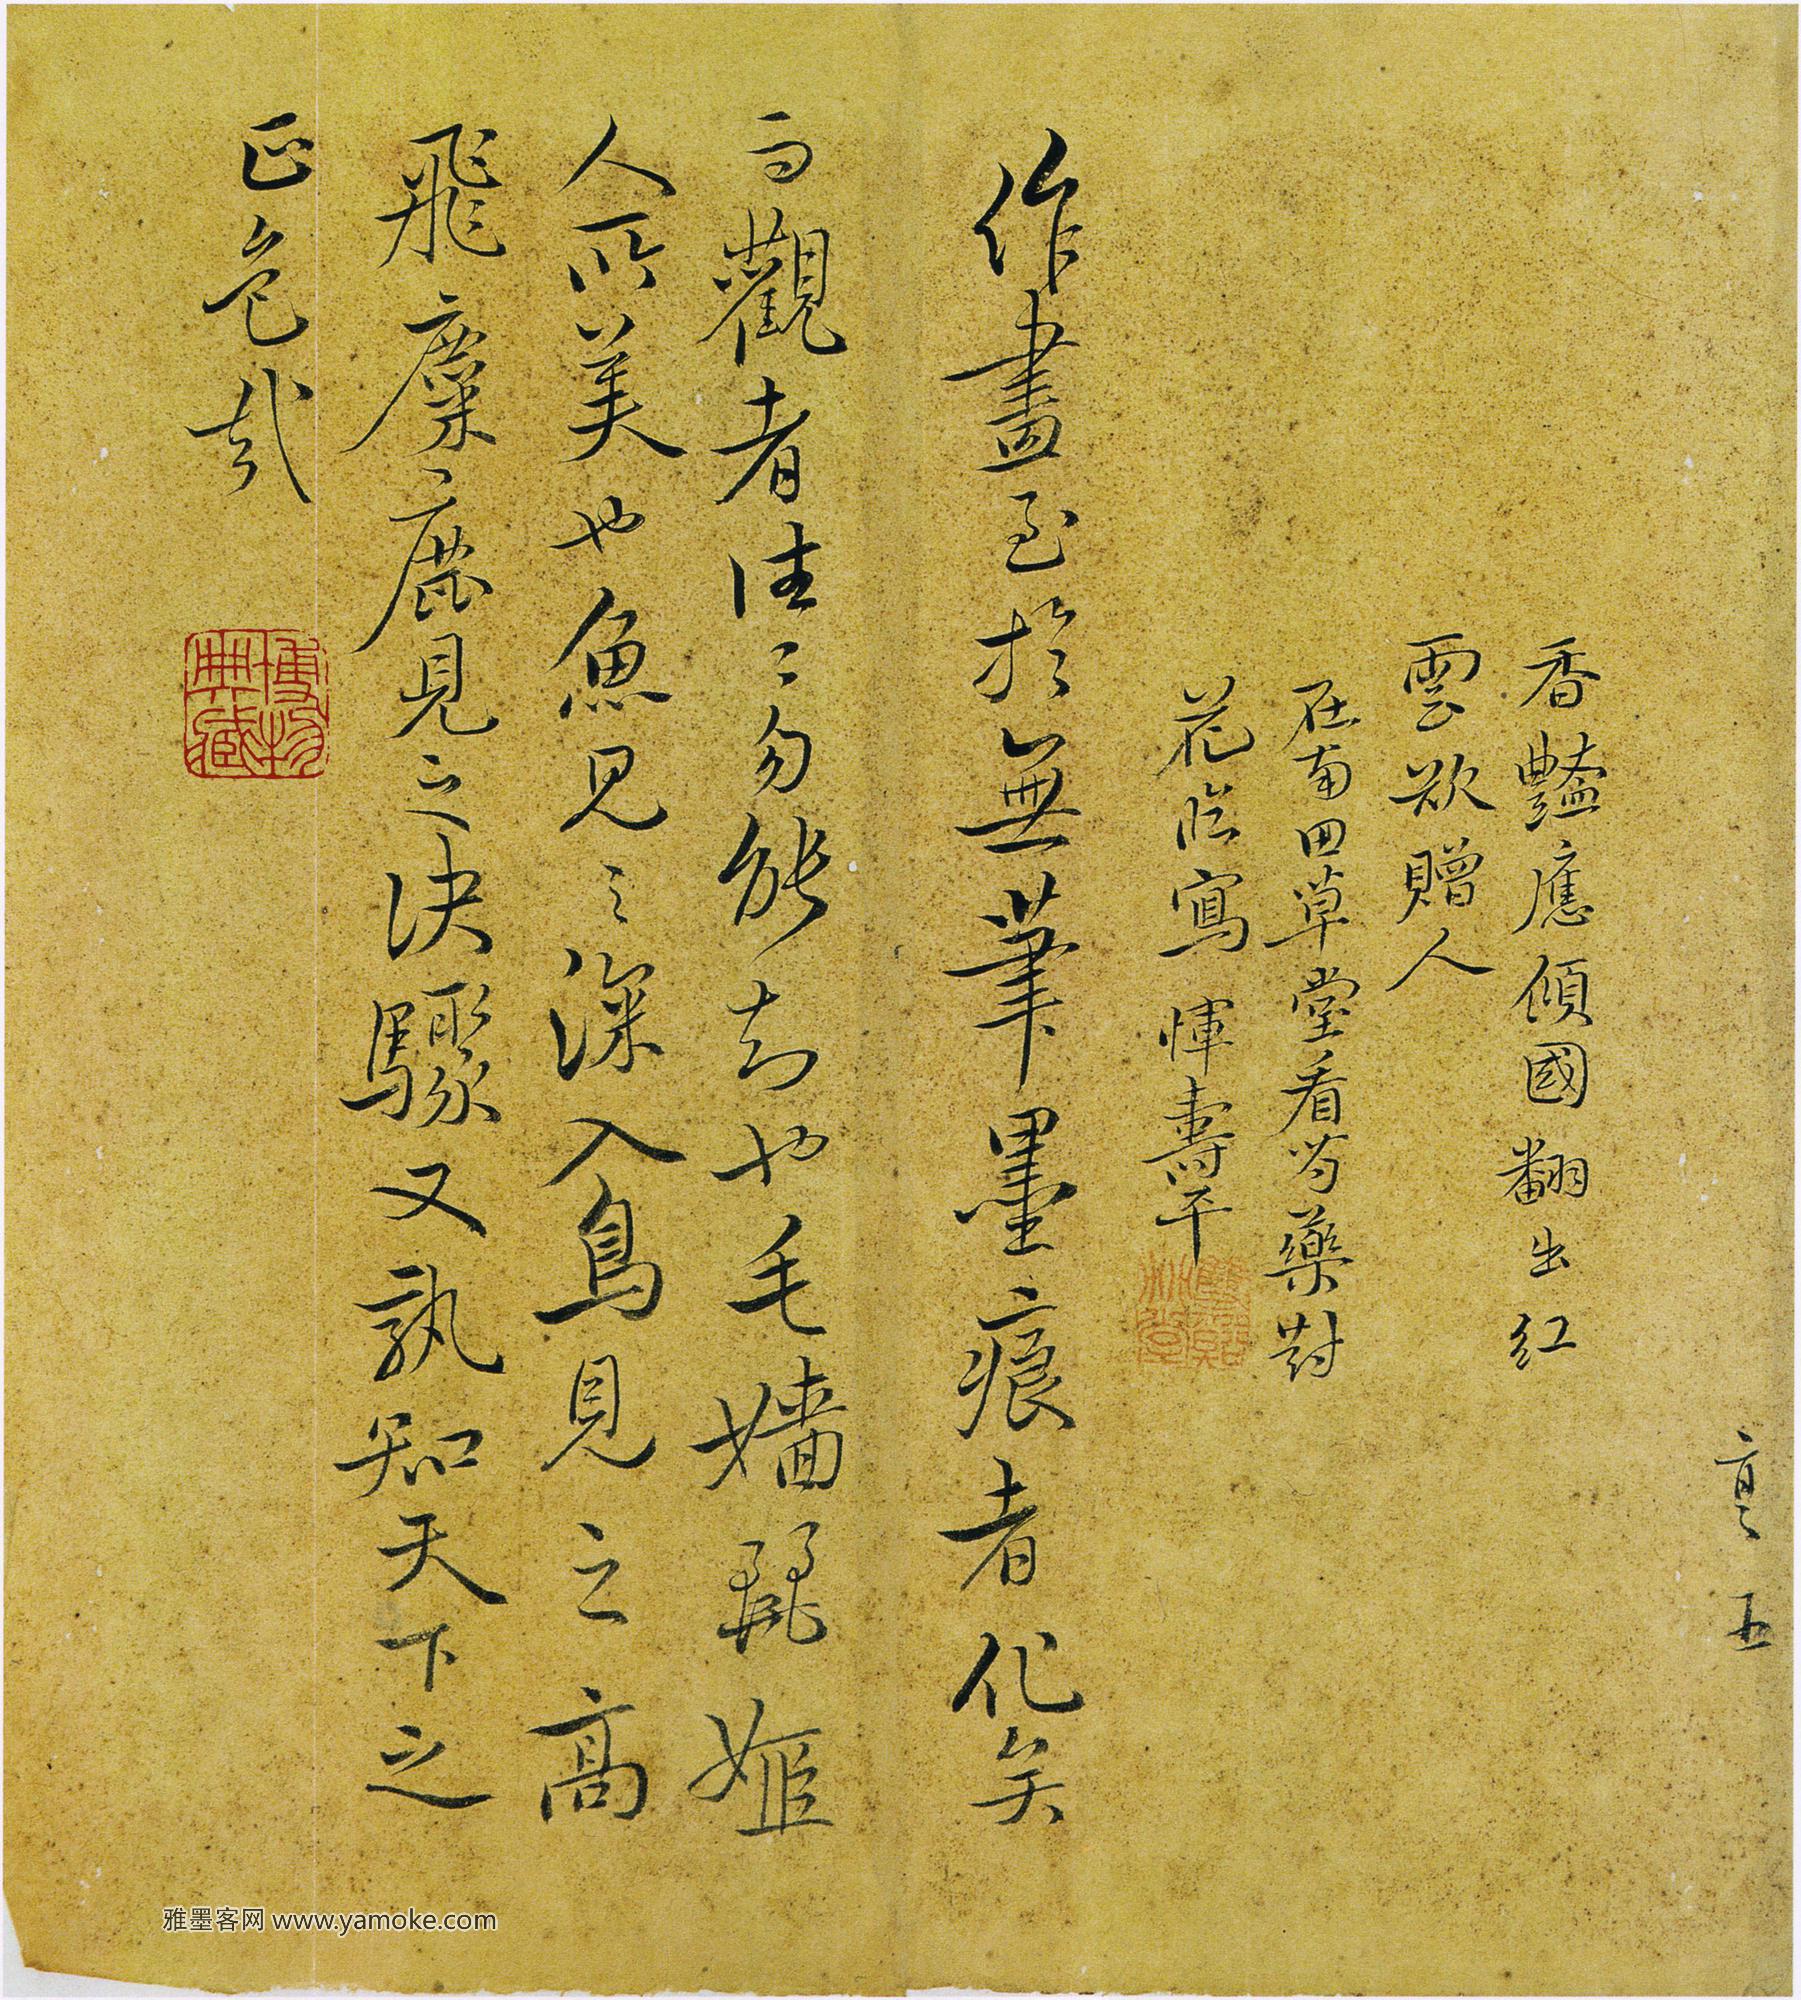 香豔應傾國翻出紅
雲欲贈人
在南田草堂看芍藥對
花臨寫 惲壽平
作畫至於無筆墨痕者化矣
而觀者往〻勿能知也毛嬙麗姬
人所美也魚見之深入鳥見之高
飛麋鹿見之決驟又孰知天下之
正色哉
博物
典藏
雅墨客网 www.yamoke.com